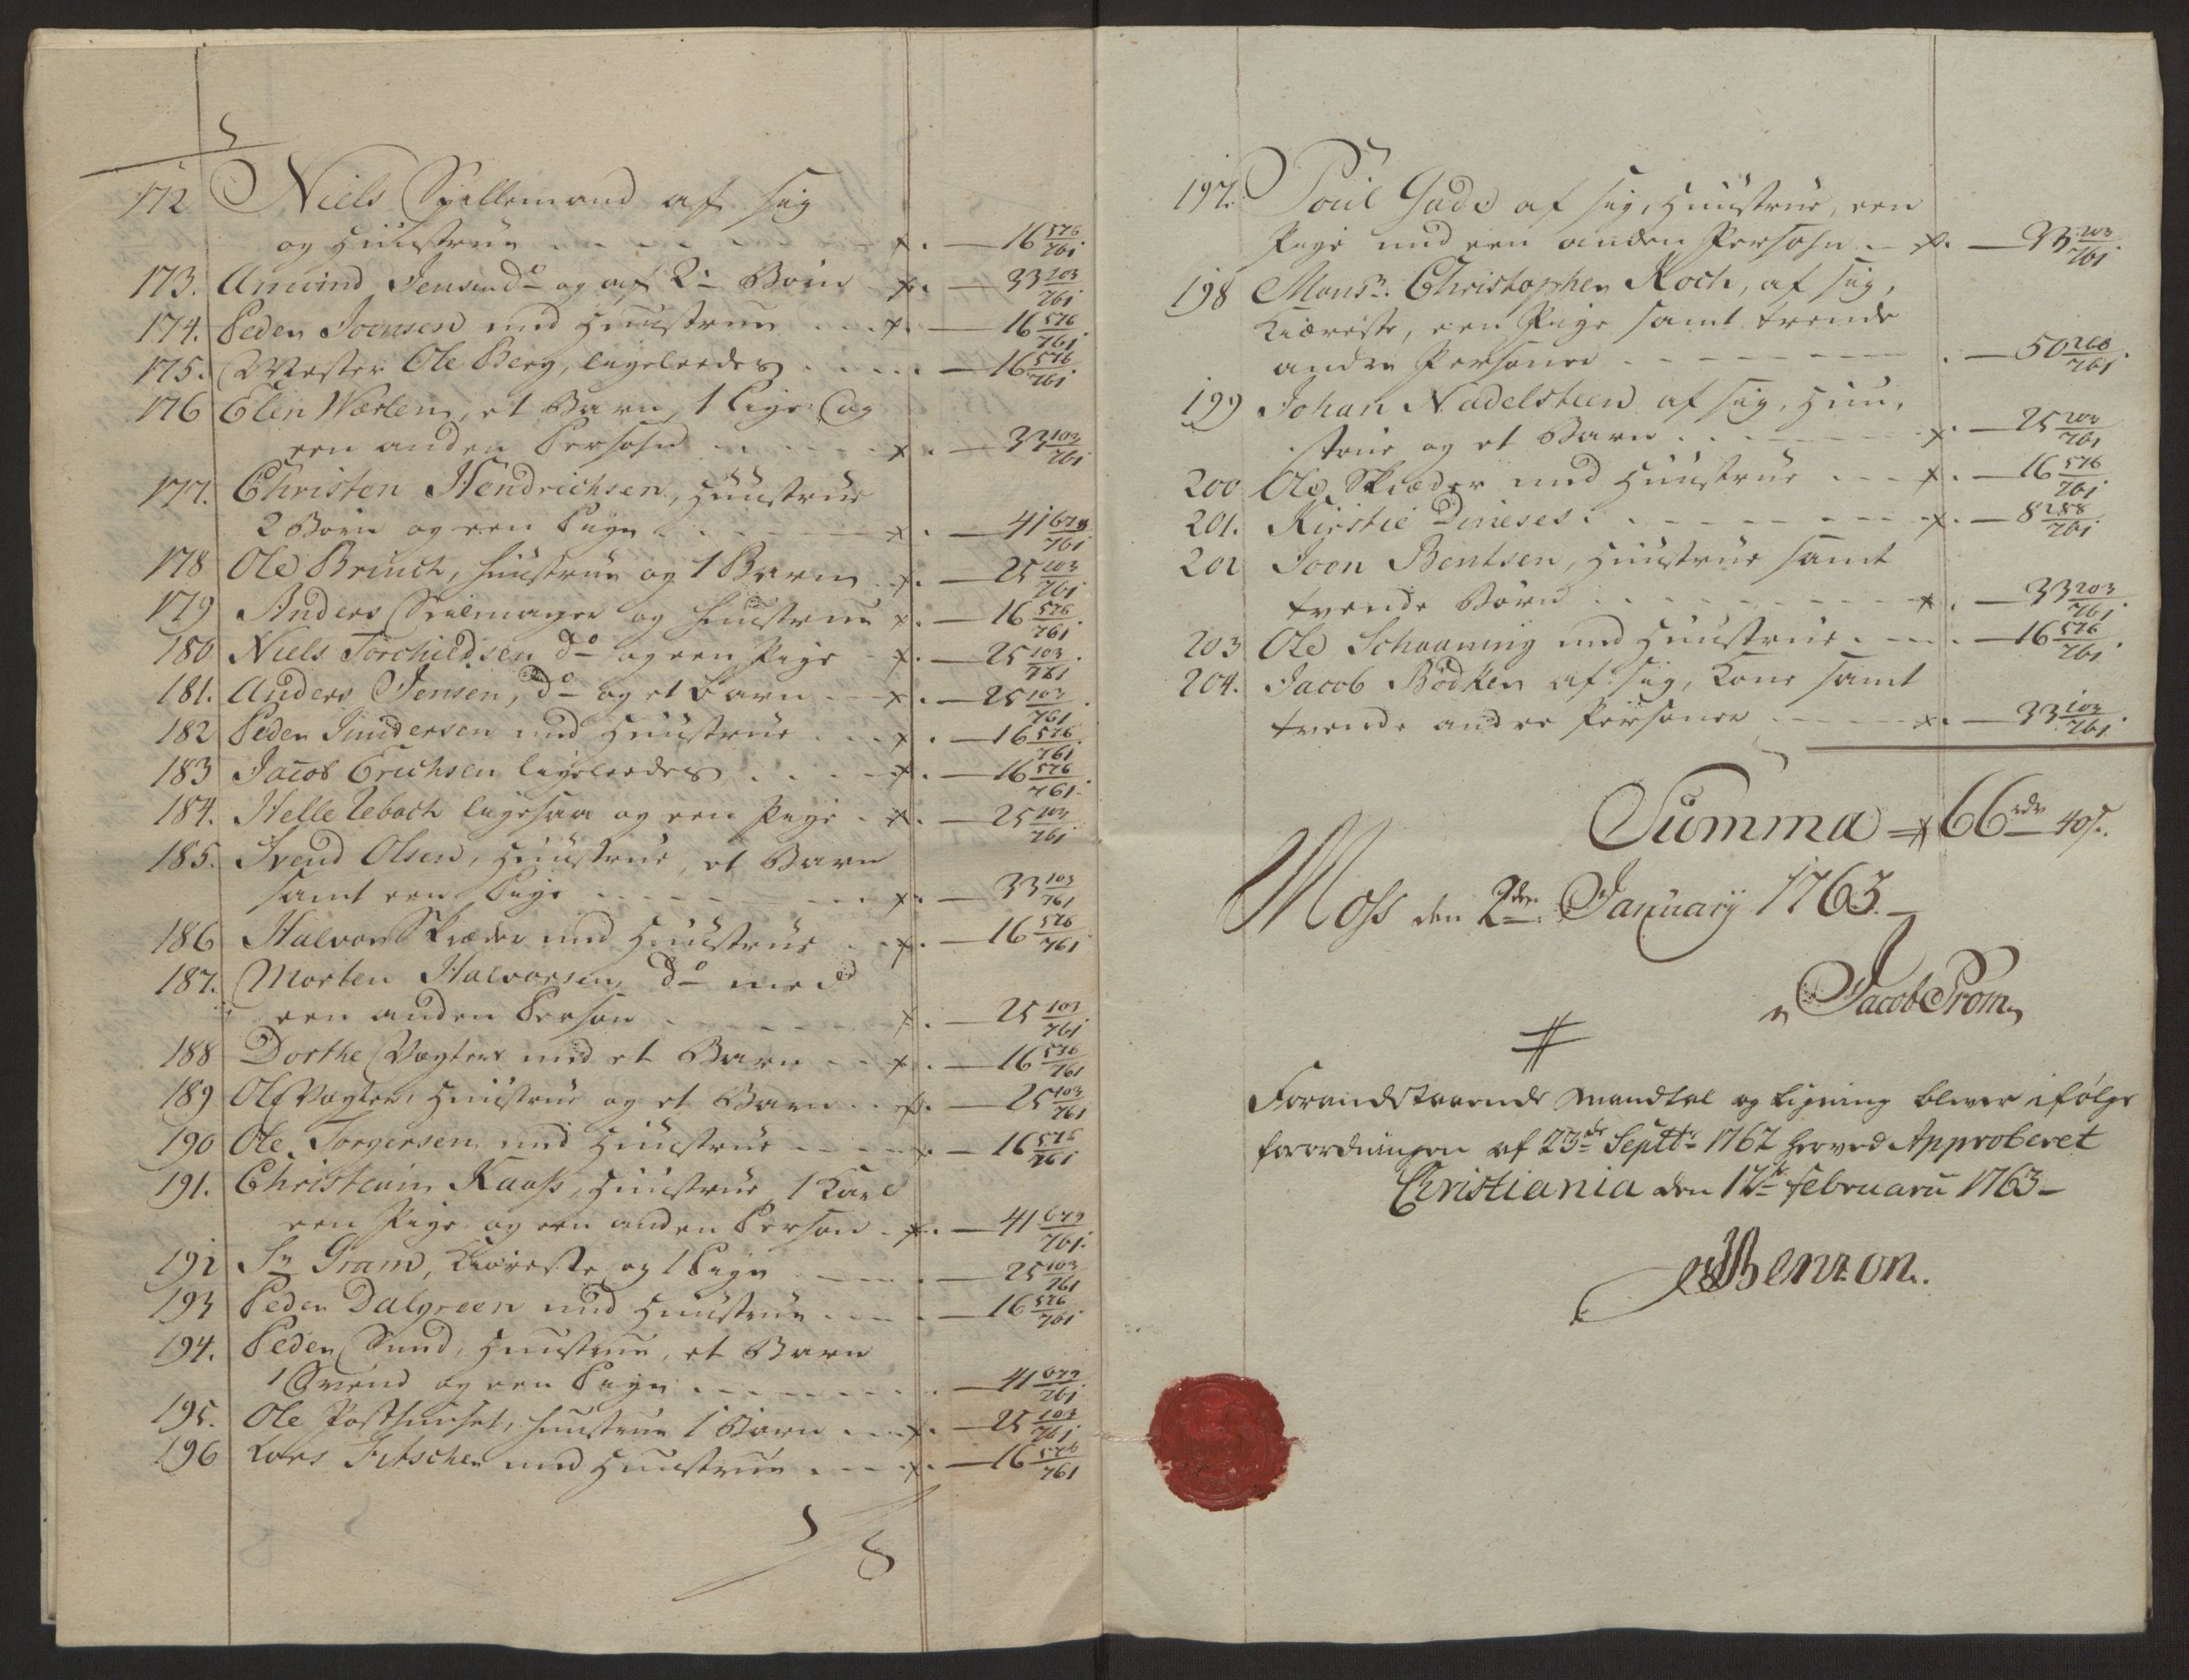 172 Niels Spillemand af sig
og Huustrue - - - - - x. — 16 576/761
173. Amund Jensen do og af 2de Børn x. — 33 203/761
174. Peder Joensen med Huustrue . . . x. — 16 576/761
175. Mester Ole Berg, ligeleedes . . . . — 16 576/761
176 Elen Wærlem, et Barn, 1 Pige og
een anden Persohn . . . . x. — 33 103/761
177. Christen Hendrichsen, Huustrue
2 Børn og een Pige - - - x. — 41 679/761
178 Ole Bruuch, Huustrue og 1 Barn x. — 25 103/761
179 Anders Seilmager og Huustrue x. — 16 576/761
180 Niels Torchieldsen do og een Pige - x. — 25 103/761
181. Anders Jensen, do og et Barn - - x. — 25 103/761
182 Peder Gundersen med Huustrue . . . x. — 16 576/761
183 Jacob Erichsen ligeleedes . . . . x. — 16 576/761
184. Helle Lebach ligesaa og een Pige - x. — 25 103/761
185. Svend Olsen, Huustrue, et Barn
samt een Pige - - - - x. — 33 103/761
186 Halvor Skræder med Huustrue . . x. — 16 576/761
187. Morten Halvorsen, do med
een anden Person - - - - x. — 25 103/761
188 Dorthe Vægters med et Barn - - x. — 16 576/761
189 Ole Vægter, Huustrue og et Barn . . x. — 25 103/761
190 Ole Torgersen med Huustrue - - - x — 16 576/761
191. Christian Kaass, Huustrue 1 Karl
een Pige og een anden Person - x. — 41 679/761
192 Sr Gram, Kiæreste og 1 Pige - - - — 25 103/761
193 Peder Dalgreen med Huustrue . . . — 16 576/761
194. Peder Sund, Huustrue, et Barn
1 Svend og een Pige . . . . . . — 41 679/761
195. Ole Posthuuset, Huustrue 1 Barn . . x. — 25 103/761
196 Lars Fitscher med Huustrue . . . . x. — 16 576/761
197. Poul Gade af sig, Huustrue, een
Pige med een anden Persohn - x. — 33 203/761
198 Monsr. Christopher Koch, af sig,
Kiæreste, een Pige samt trende
andre Personer - - - - - - . — 50 206/761
199 Johan Nadelsteen af sig, Huu-
strue og et Barn . . - - - - x. — 25 203/761
200 Ole Skræder med Huustrue - - - x. — 16 576/761
201. Kirstie Dineses . . - - - - - x. — 8 288/761
202 Joen Bentsen, Huustrue samt
tvende Børn . . . - - - - x. — 33 203/761
203 Ole Schaaning med Huustrue . - - . — 16 576/761
204. Jacob Bødker af sig, Kone samt
tvende andre Personer - - - - x. — 33 103/761
Summa 66 rdr 40 s.
Moss den 2den January 1763.
Jacob Prom
Forandstaaende Mandtal og Ligning bliver ifølge
forordningen af 23de Septbr 1762 herved Approberet
Christiania den 17de februarii 1763 -
Benzon.